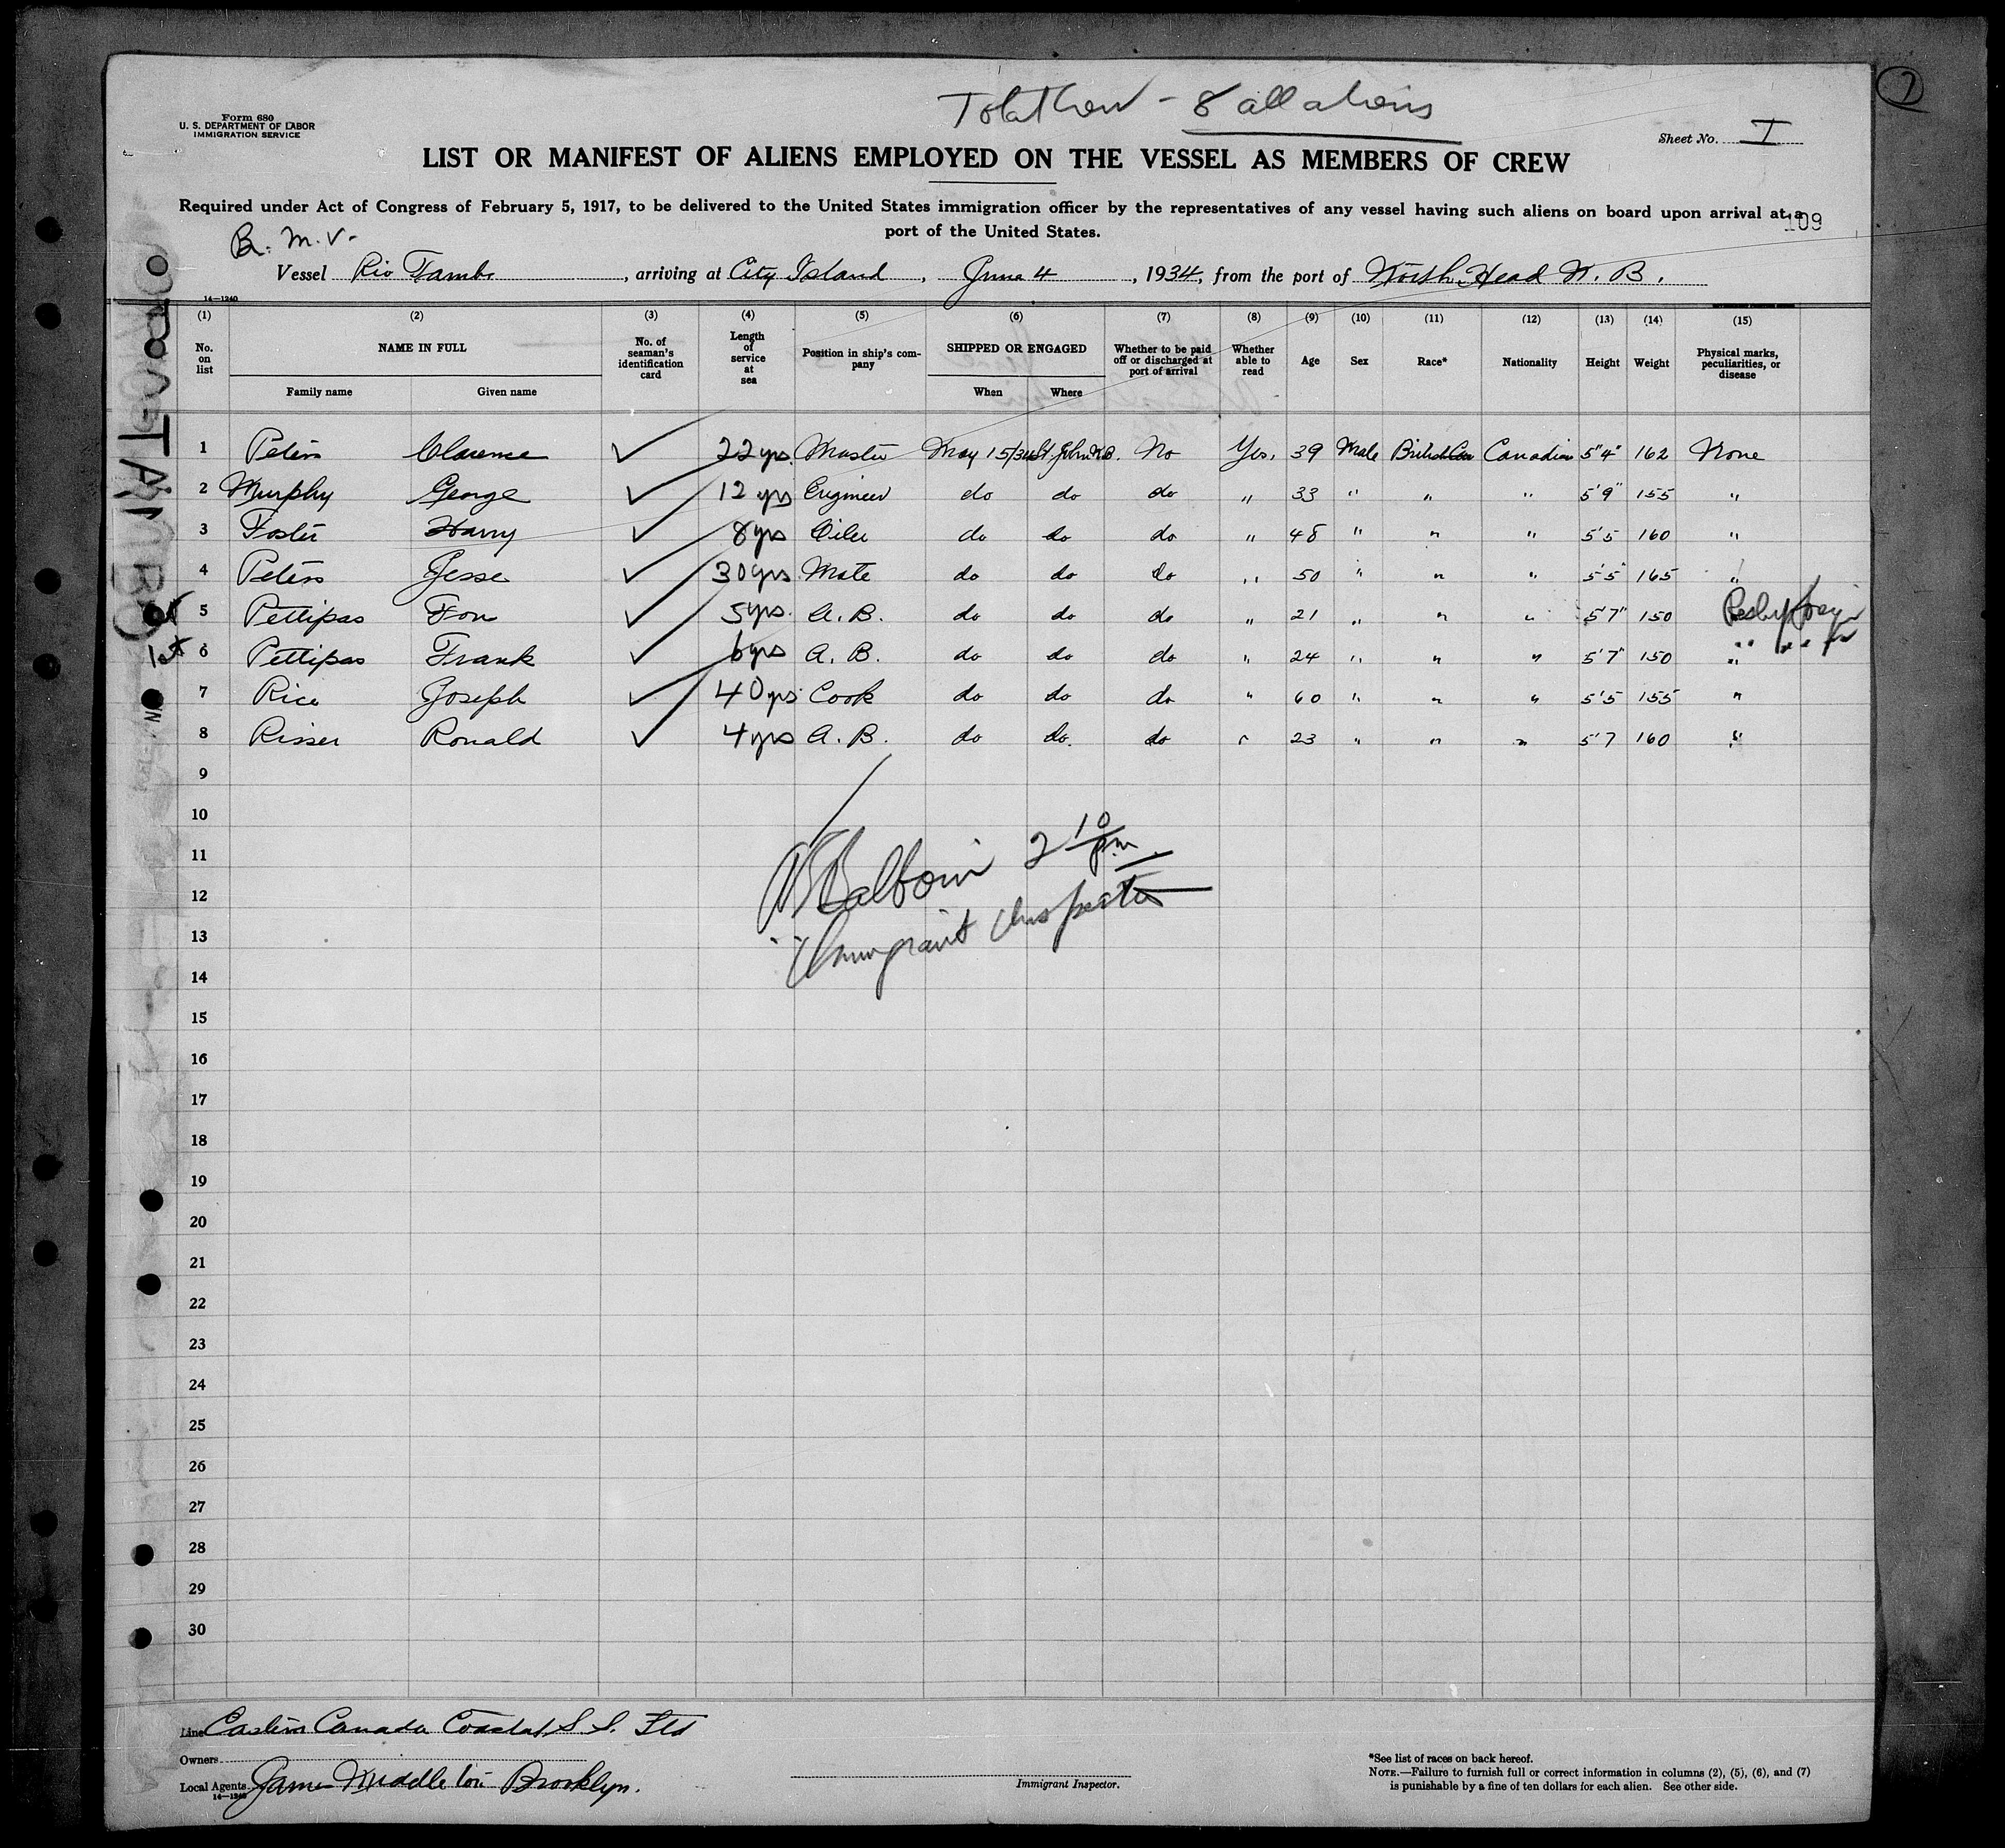 Total Crew - 8 all aliens
1
Form 680
U. S. DEPARTMENT OF LABOR
IMMIGRATION SERVICE
Sheet No. I
LIST OR MANIFEST OF ALIENS EMPLOYED ON THE VESSEL AS MEMBERS OF CREW
Required under Act of Congress of February 5, 1917, to be delivered to the United States immigration officer by the representatives of any vessel having such aliens on board upon arrival at a
port of the United States.
109
Br. M.V.
Vessel Rio Tambo, arriving at City Island, June 4, 1934, from the port of North Head N. B.
14—1240
(1) (2) (3) (4) (5) (6) (7) (8) (9) (10) (11) (12) (13) (14) (15)
No. on list NAME IN FULL No. of seaman's identification card Length of service at sea Position in ship's company SHIPPED OR ENGAGED Whether to be paid off or discharged at port of arrival Whether able to read Age Sex Race* Nationality Height Weight Physical marks, peculiarities, or disease
Family name Given name When Where
1 Peters Clarence ✓ 22 yrs. Master May 15/34 St. John N.B. No Yes, 39 Male British Can Canadian 5'4" 162 None
2 Murphy George ✓ 12 yrs Engineer do do do " 33 " " " 5'9" 155 "
3 Foster Harry ✓ 8 yrs Oiler do do do " 48 " " " 5'5 160 "
4 Peters Jesse ✓ 30 yrs Mate do do do " 50 " " " 5'5" 165 "
5 Pettipas Fon ✓ 5 yrs. A. B. do do do " 21 " " " 5'7" 150
6 Pettipas Frank ✓ 6 yrs A. B. do do do " 24 " " " 5'7" 150 "
7 Rice Joseph ✓ 40 yrs. Cook do do do " 60 " " " 5'5 155 "
8 Risser Ronald ✓ 4 yrs A. B. do do. do " 23 " " " 5'7 160 "
9
10
11
12
13
14
15
16
17
18
19
20
21
22
23
24
25
26
27
28
29
30
Baldwin 2 10 pm
Immigrant Inspector
Line Eastern Canada Coastal S. S. Ltd
Owners
Local Agents James Middleton Brooklyn.
14—1240
Immigrant Inspector.
*See list of races on back hereof.
NOTE.—Failure to furnish full or correct information in columns (2), (5), (6), and (7)
is punishable by a fine of ten dollars for each alien. See other side.